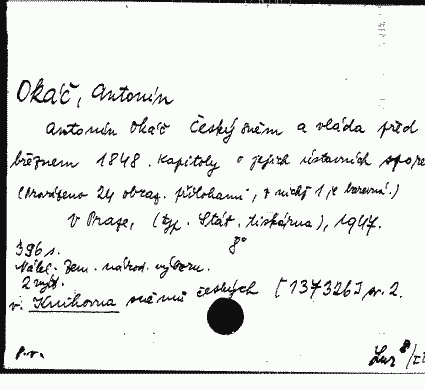 Okáč, Antonín
Antonín Okáč Český sněm a vláda před
březnem 1848. Kapitoly o jejich ústavních spore
(Provázeno 24 obraz. přílohami, z nichž 1 je barevná.)
V Praze, (typ. Stát. tiskárna), 1947.
8°
396 s.
Nákl. Zem. národ. výboru.
2 výt.
v. Knihovna sněmů českých [137326] sv. 2.
p.v.